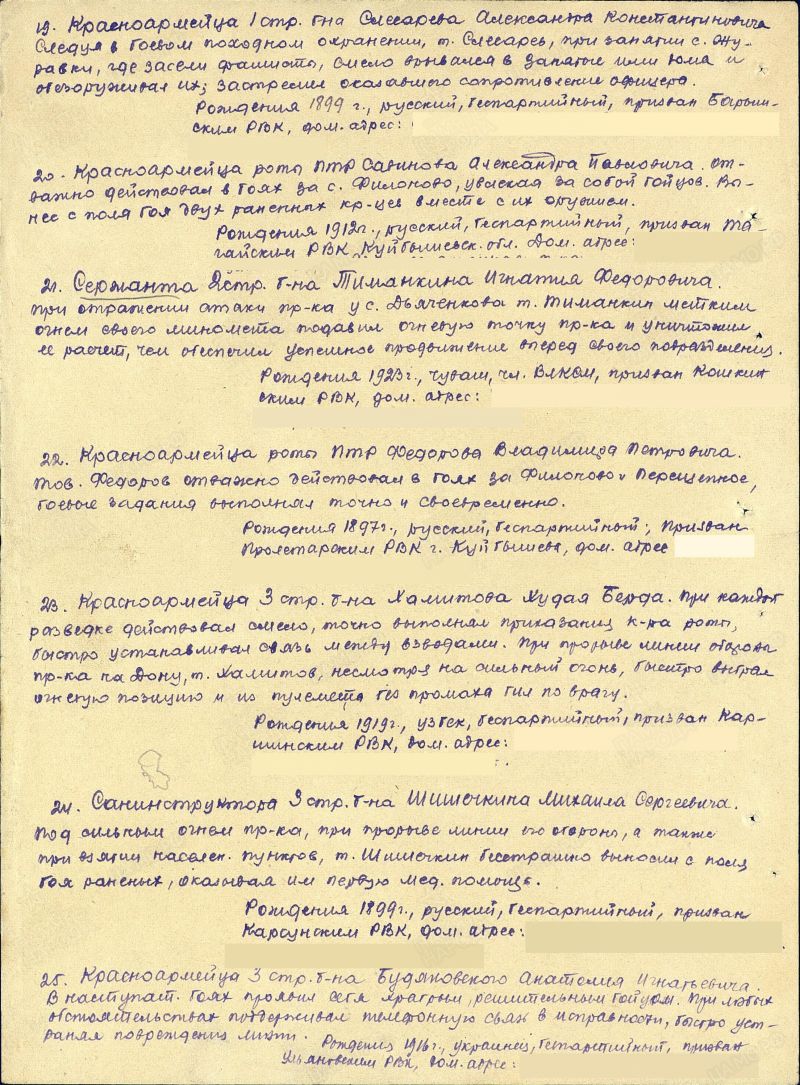 19. Красноармейца 1 стр. б-на Слесарева Александра Константиновича
Следуя в боевом походном охранении, т. Слесарев, при занятии с. Жу-
равки, где засели фашисты, смело врывался в занятые ими дома и
обезоруживал их; застрелил оказавшего сопротивление офицера.
Рождения 1899 г., русский, беспартийный, призван Барыш-
ским РВК, дом. адрес:
20. Красноармейца роты ПТР Савинова Александра Павловича. От-
важно действовал в боях за с. Филоново, увлекая за собой бойцов. Вы-
нес с поля боя двух раненных кр-цев вместе с их оружием.
Рождения 1912г., русский, беспартийный, призван Та-
гайским РВК, Куйбышевск. обл. Дом. адрес:
21. Сержанта 2 стр. б-на Тиманкина Игнатия Федоровича.
При отражении атаки пр-ка у с. Дьяченкова т. Тиманкин метким
огнем своего миномета подавил огневую точку пр-ка и уничтожил
ее расчет, чем обеспечил успешное продвижение вперед своего подразделения.
Рождения 1923г., чуваш, чл. ВЛКСМ, призван Кошкин
ским РВК, дом. адрес:
22. Красноармейца роты ПТР Федорова Владимира Петровича.
Тов. Федоров отважно действовал в боях за Филоново и Перещепное,
боевые задания выполнял точно и своевременно.
Рождения 1897г., русский, беспартийный, призван
Пролетарским РВК г. Куйбышева, дом. адрес
23. Красноармейца 3 стр. б-на Хамитова Худая Берда. При каждой
разведке действовал смело, точно выполнял приказания к-ра роты,
быстро устанавливал связь между взводами. При прорыве линии обороны
пр-ка на Дону, т. Хамитов, несмотря на сильный огонь, быстро выбрал
огневую позицию и из пулемета без промаха бил по врагу.
Рождения 1919г., узбек, беспартийный, призван Кар-
шинским РВК, дом. адрес:
24. Санинструктора 3 стр. б-на Шишочкина Михаила Сергеевича.
Под сильным огнем пр-ка, при прорыве линии его обороны, а также
при взятии населен. пунктов, т. Шишочкин бесстрашно выносил с поля
боя раненых, оказывая им первую мед. помощь.
Рождения 1899г., русский, беспартийный, призван
Карсунским РВК, дом. адрес:
25. Красноармейца 3 стр. б-на Будяковского Анатолия Игнатьевича.
В наступат. боях проявил себя храбрым, решительным бойцом. При любых
обстоятельствах поддерживал телефонную связь в исправности, быстро уст-
раняя повреждения линии.
Рождения 1916г., украинец, беспартийный, призван
Ульяновским РВК, дом. адрес: